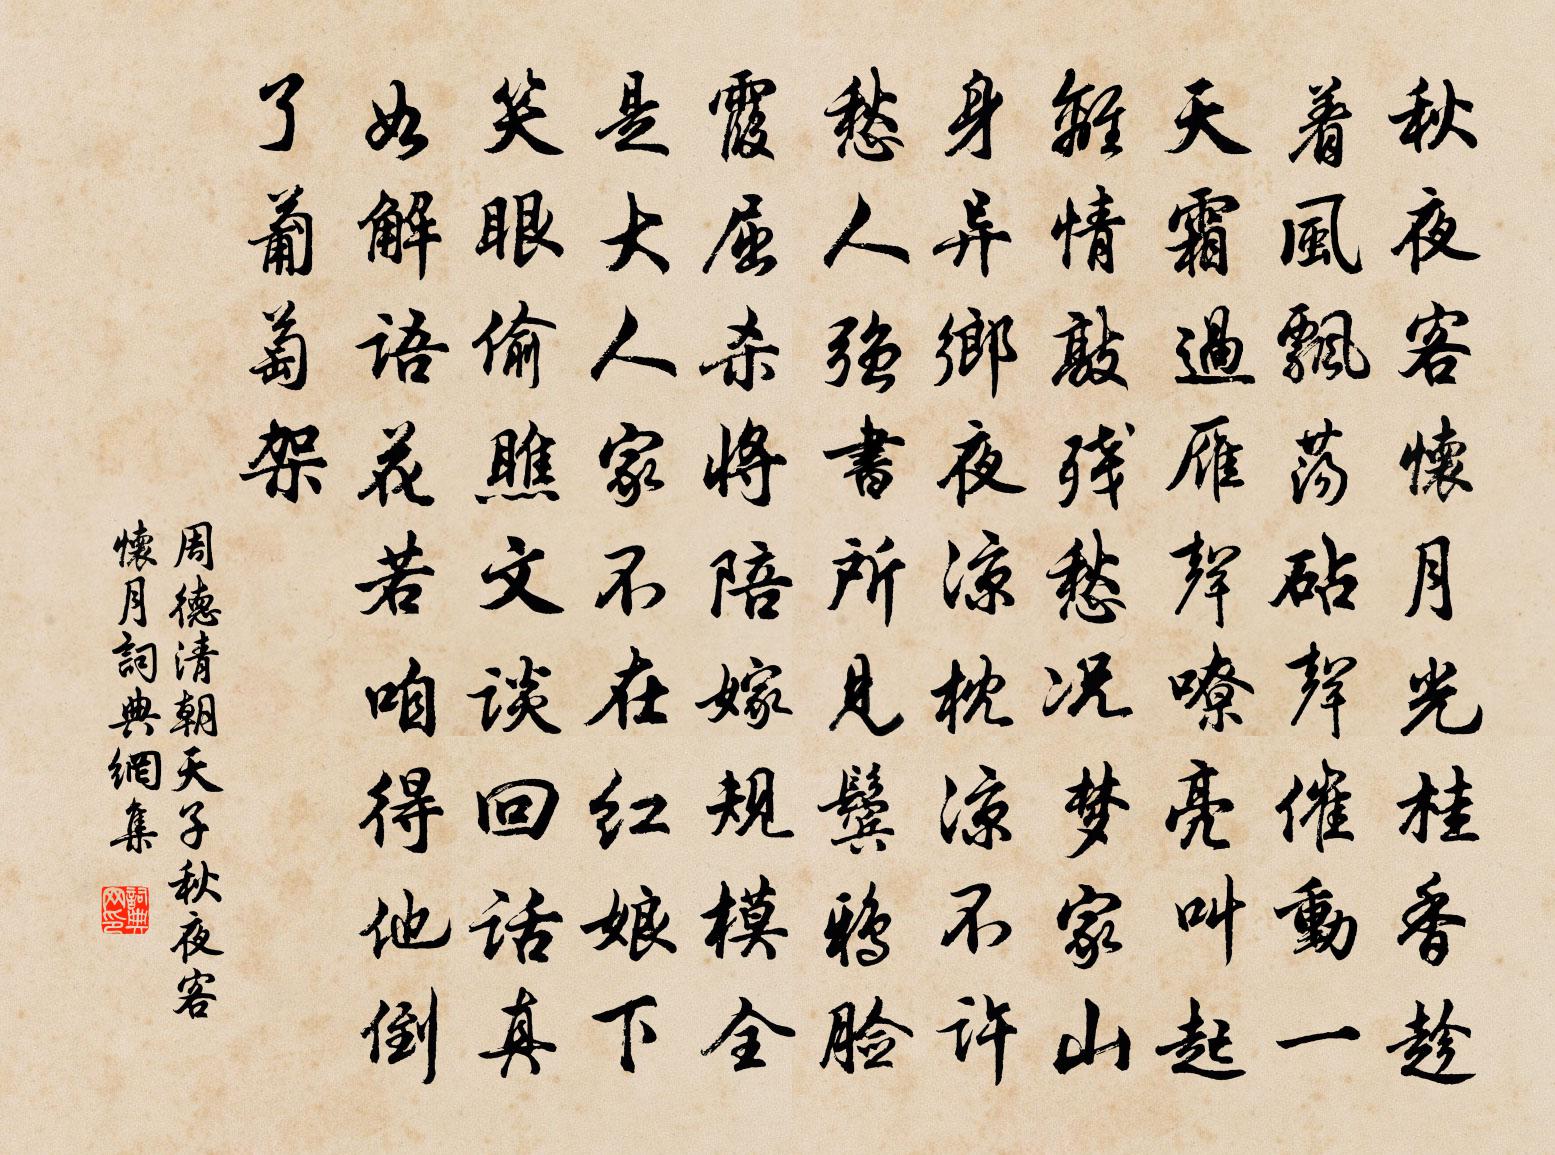 秋夜客懷月光桂香趁
着風飄荡砧聲催動一
天霜過雁聲嘹亮叫起
離情敲残愁况梦家山
身异鄉夜涼枕涼不许
愁人强書所見鬓鸦脸
霞屈杀将陪嫁规模全
是大人家不在红娘下
笑眼偷瞧文谈回话真
如解语花若咱得他倒
了葡萄架
周德清朝天子秋夜客
懷月詞典網集
詞典
网印